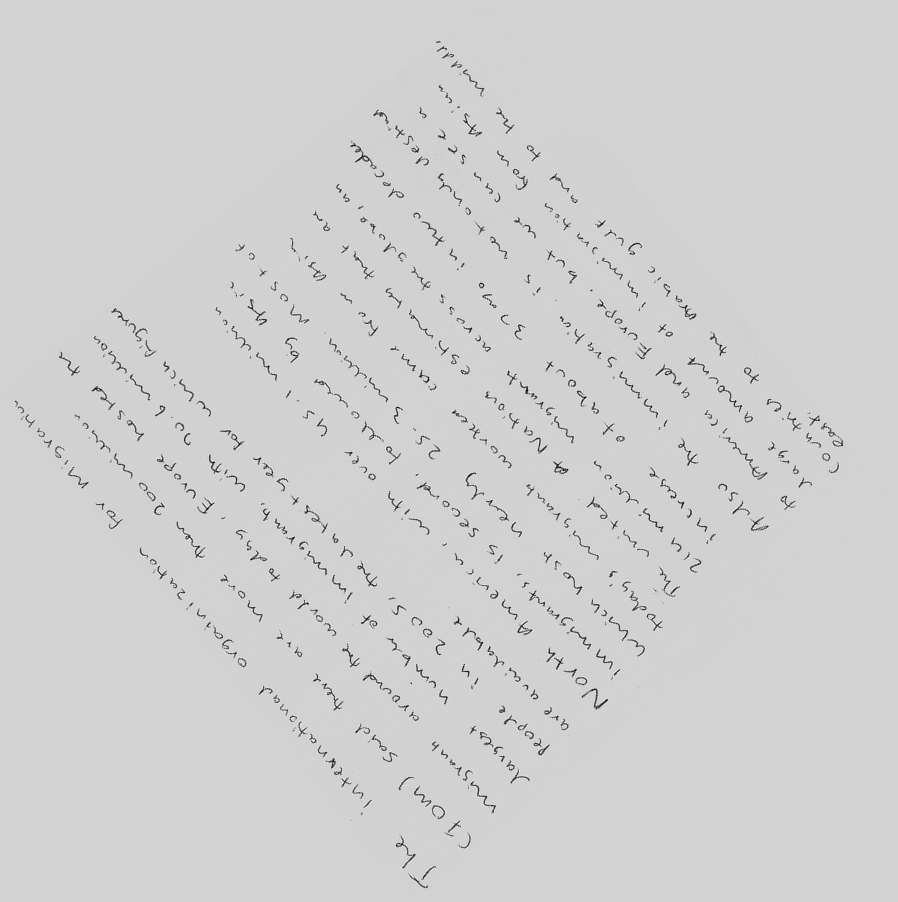 The international organization for migration
(IOM) said there are more then 200 million
migrants around the world today, Europe hosted the
largest number of immigrants, with 70.6 million
people in 2005, the latest year for which figures
are available
North America, with over 45.1 million
immigrants, is second, followed by Asia
which hosts nearly 25.3 million Most of
today's migrants workers come from Asia
The United Nations estimates that an
214 million migrants across the globe, an
increase of about 37% in two decade
Also the immigration is not only destined
to America and Europe. but we can see a
large amount of immigration from Asian
countries to the Arabic gulf and to the middle
east.